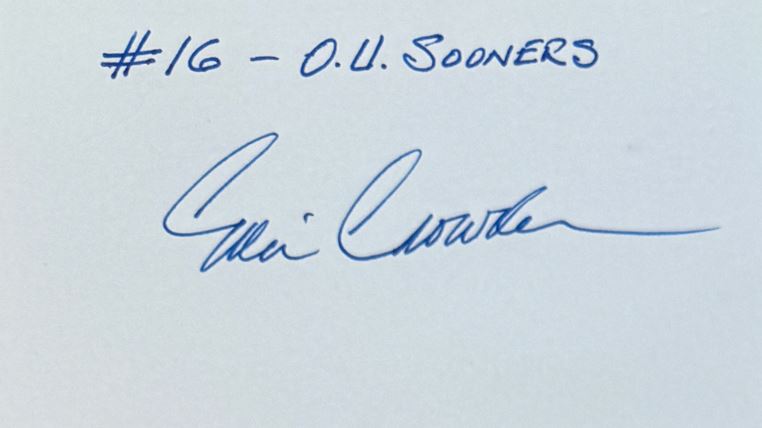 #16 - O.U. SOONERS
Eddie Crowder